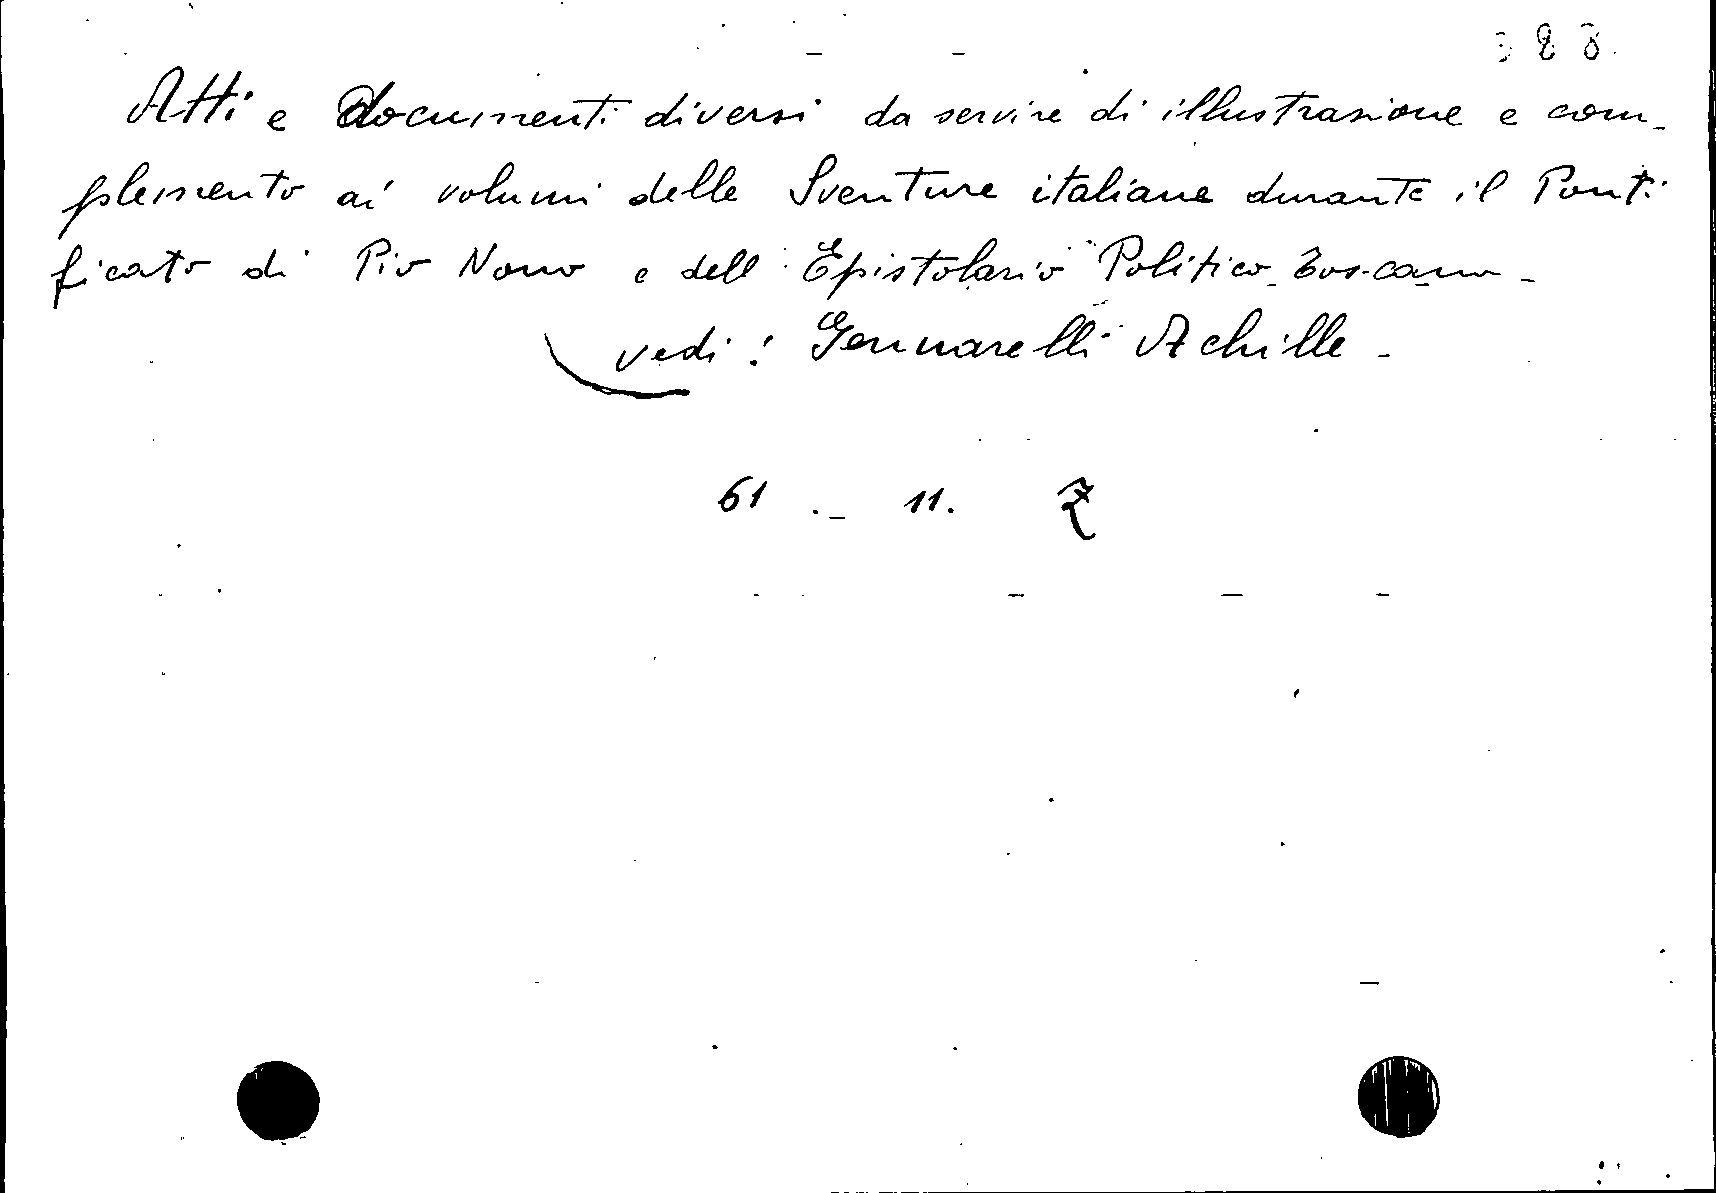 388
Atti e documenti diversi da servire di illustrazione e com-
plemento ai volumi delle Sventure italiane durante il Ponti
ficato di Pio Nono e dell'Epistolario Politico Toscano -
vedi: Gennarelli Achille -
61 . - 11. Z